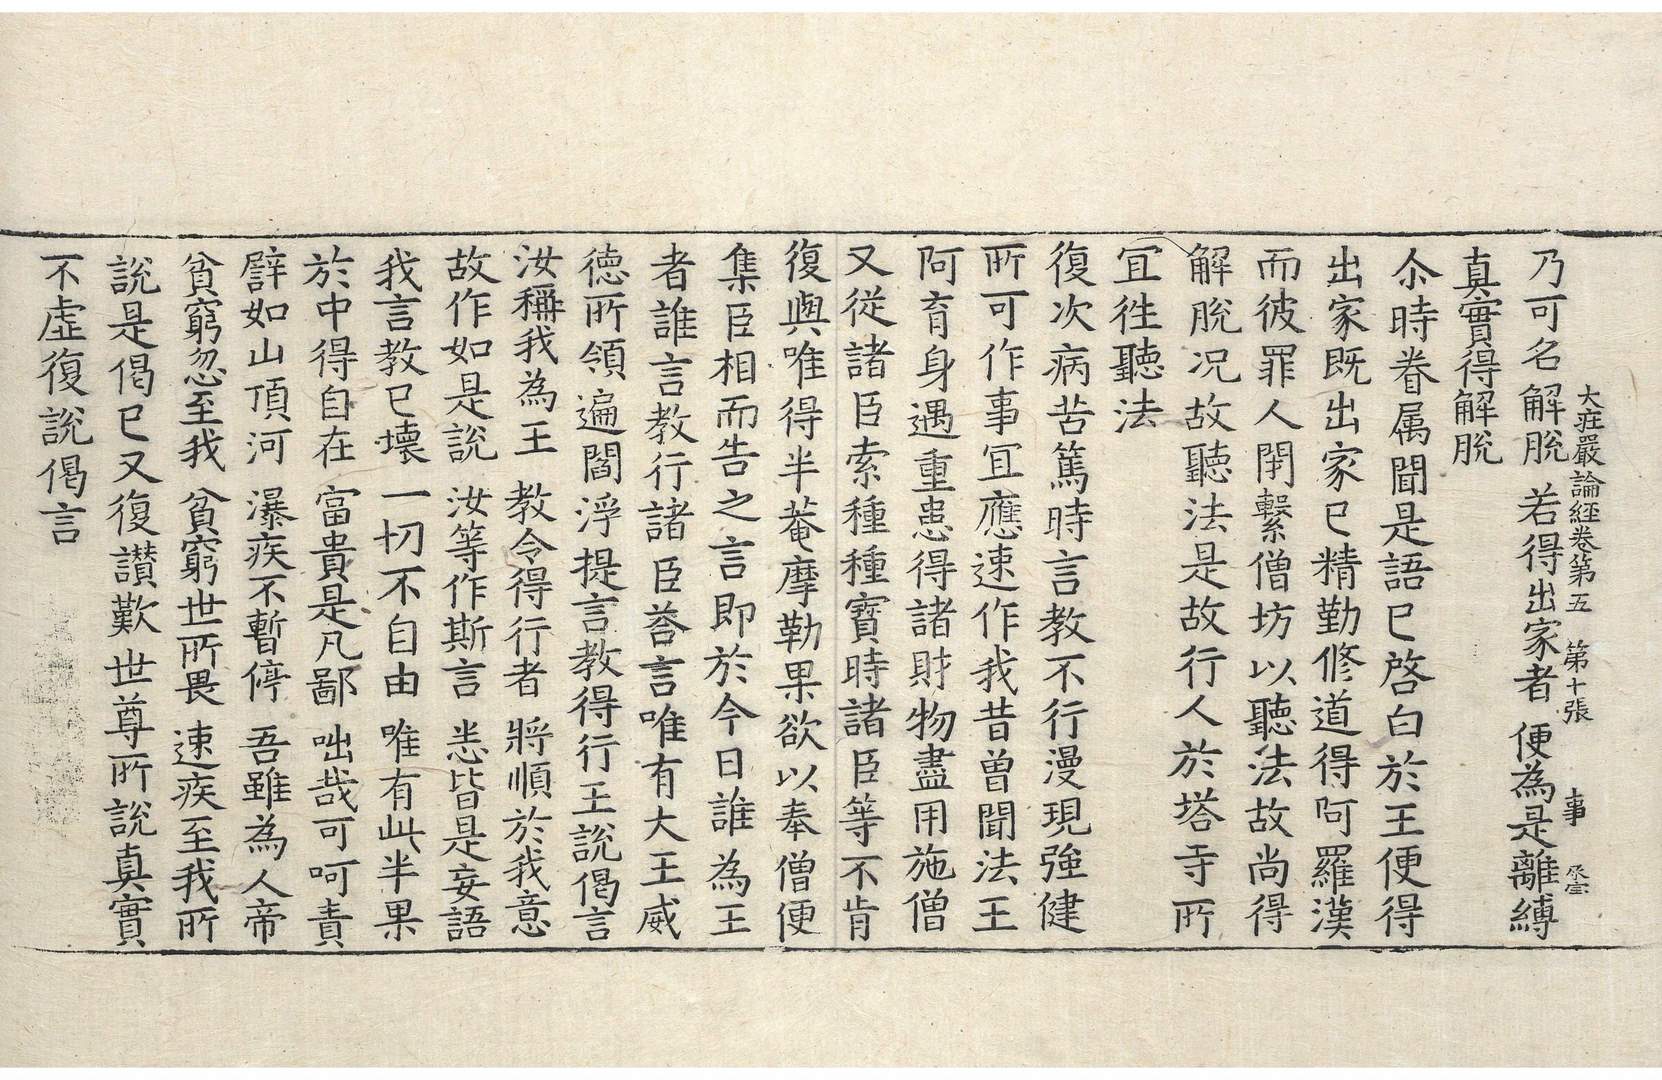 大莊嚴論經卷第五　第十張　事　丞宝
乃可名解脫　若得出家者　便為是離縛
真實得解脫
尒時眷属聞是語已啓白於王便得
出家既出家已精勤修道得阿羅漢
而彼罪人閉繫僧坊以聽法故尚得
解脫况故聽法是故行人於塔寺所
宜徃聽法
復次病苦篤時言教不行漫現強健
所可作事宜應速作我昔曽聞法王
阿育身遇重患得諸財物盡用施僧
又從諸臣索種種寶時諸臣等不肯
復與唯得半菴摩勒果欲以奉僧便
集臣相而告之言即於今日誰為王
者誰言教行諸臣荅言唯有大王威
德所領遍閻浮提言教得行王說偈言
汝稱我為王　教令得行者　將順於我意
故作如是說　汝等作斯言　悉皆是妄語
我言教已壞　一切不自由　唯有此半果
於中得自在　富貴是凡鄙　咄哉可呵責
譬如山頂河　瀑疾不暫停　吾雖為人帝
貧窮忽至我　貧窮世所畏　速疾至我所
說是偈已又復讚歎世尊所說真實
不虛復說偈言